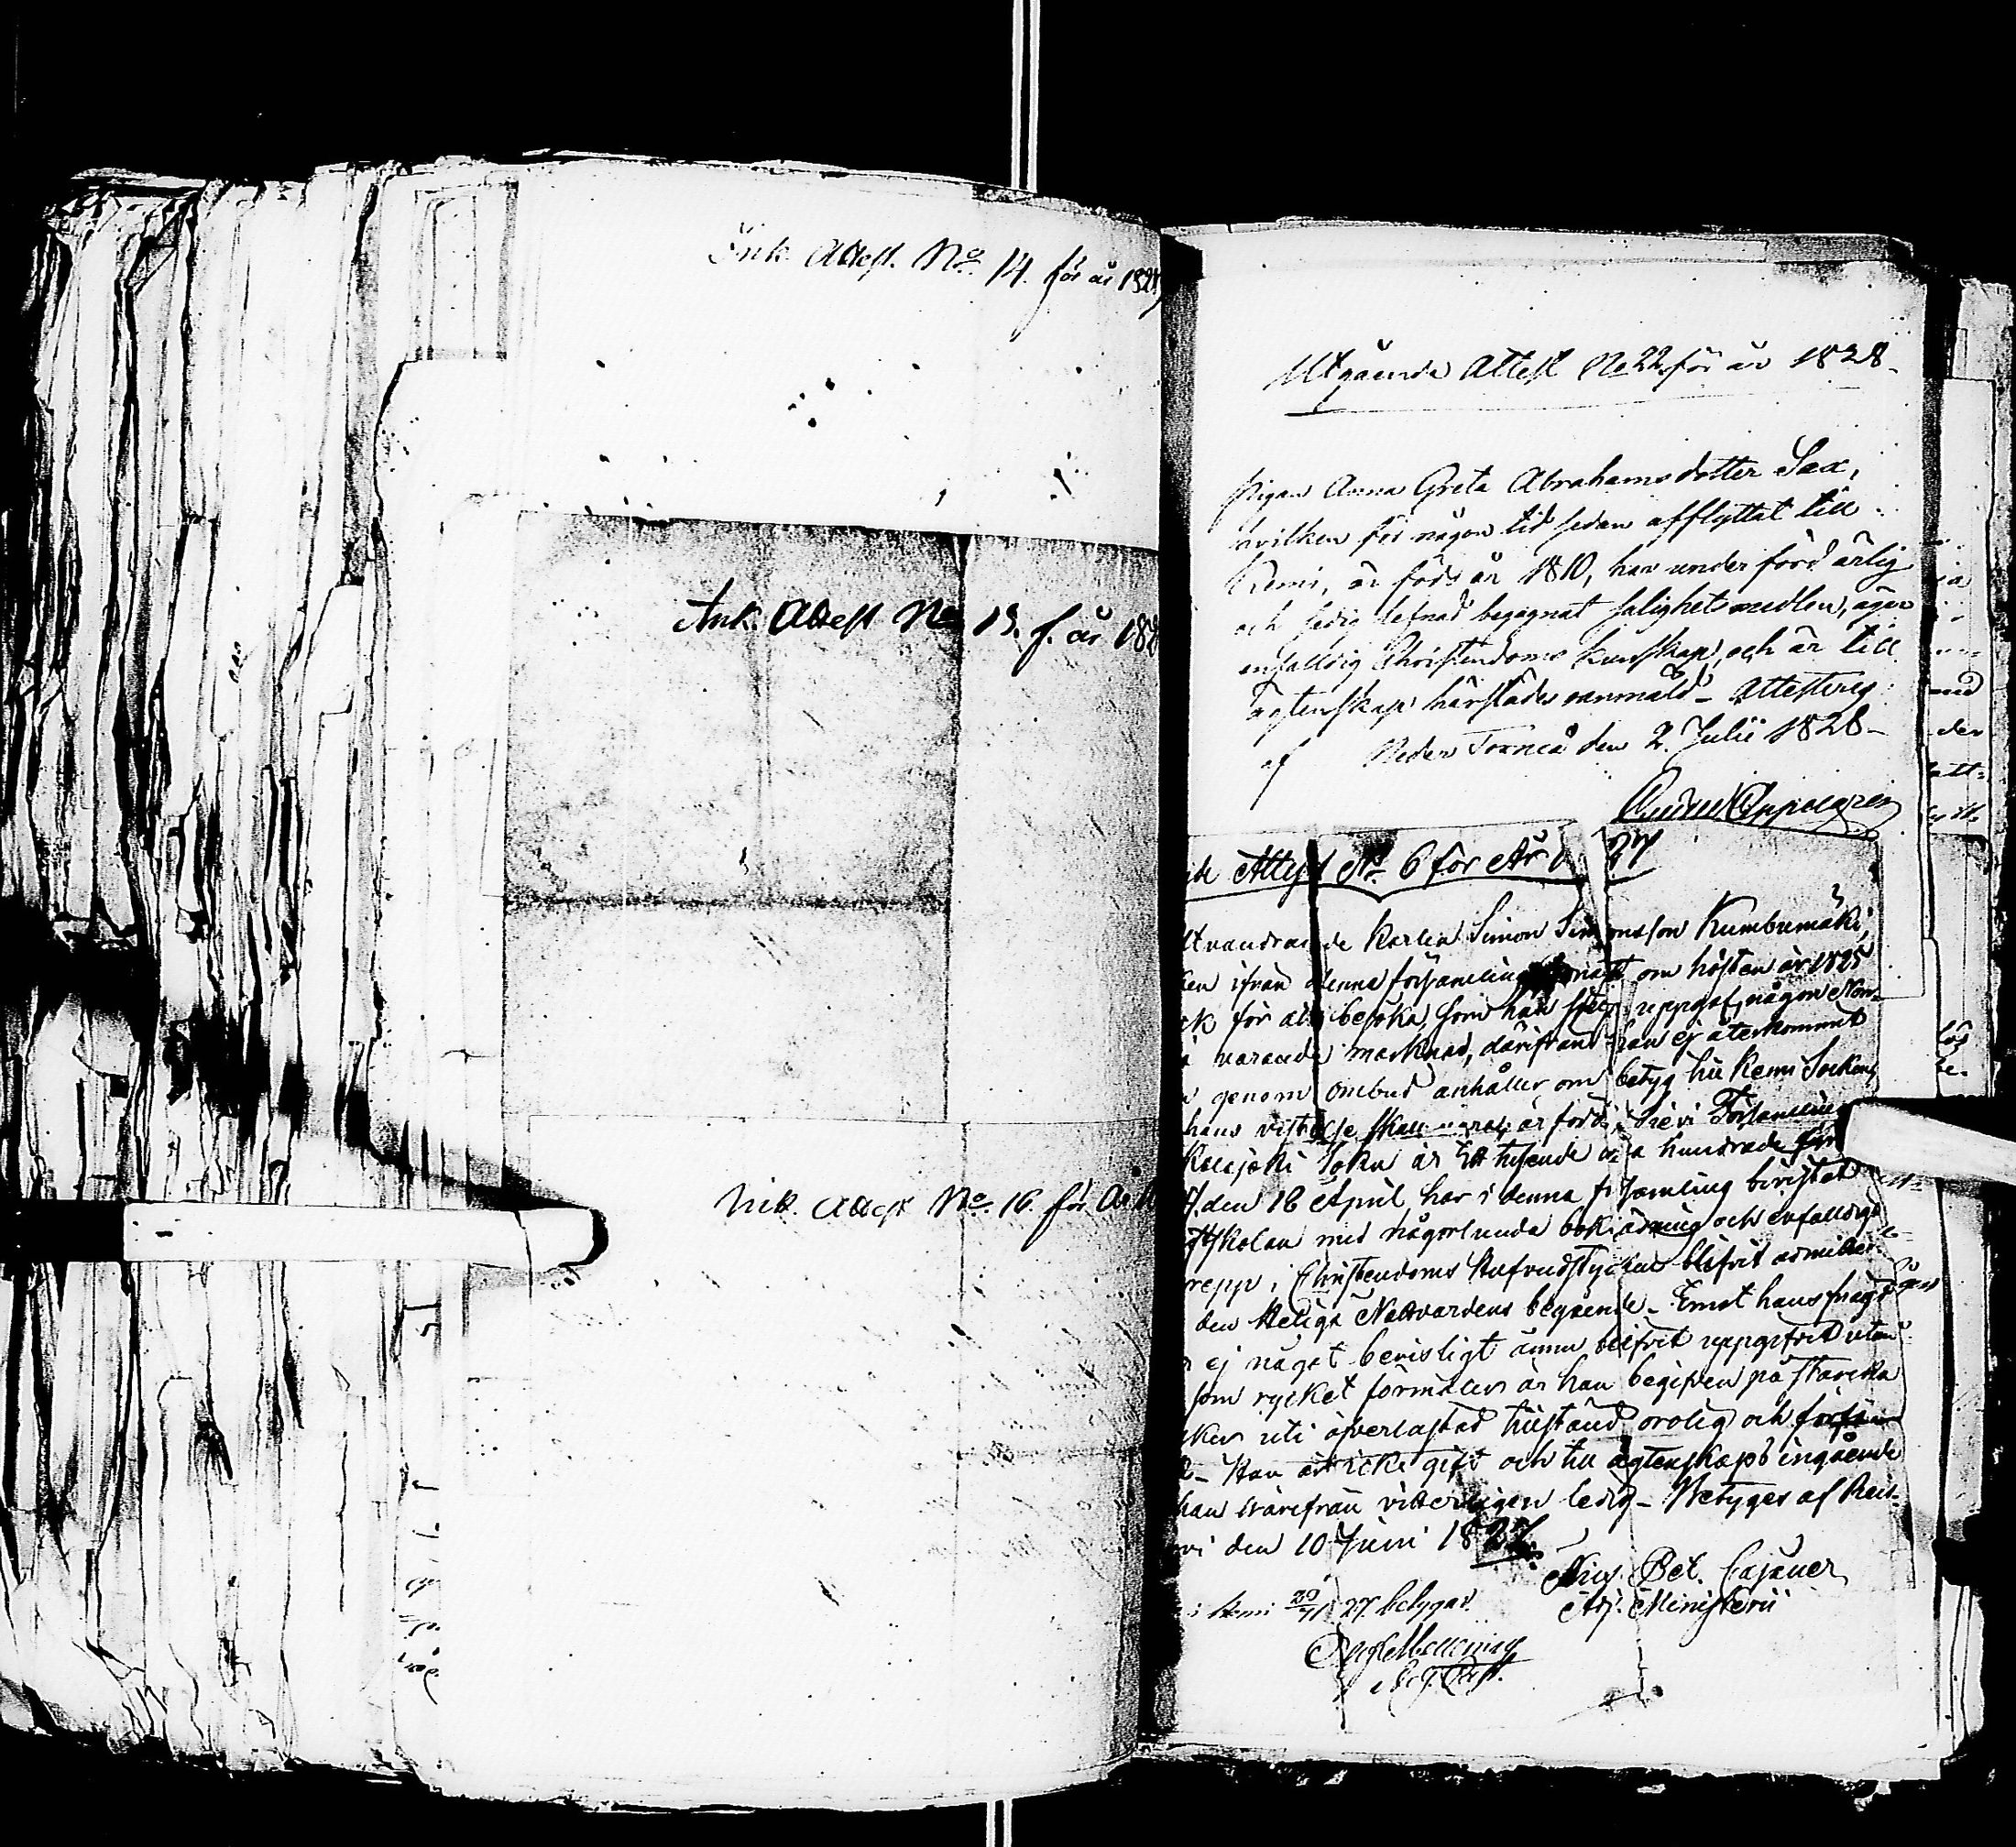 Ink. Attest. No 14. för år 1828
Ank. Attest No 15. f. år 182
Ink. Attest No. 16. för År
Utgående Attest No 22 för år 1828
Pigan Anna Greta Abrahamsdotter Sax,
hvilken för någon tid sedan afflyttat till
Kemi, är född år 1810, har under förd ärlig
och sedig lefnad begagnat salighetsmedlen, äger
enfalldig Christendoms kunskap, och är till
ägtenskap härstädes oanmäld – Attesteras
af Neder Torneå den 2. Julii 1828 –
Attest No 6 för År 27
utvandrande Karlen Simon Simonsson Kumbumäki,
ken ifrån denna församling om hösten år 1825
ck för att besöka, som han sjelf uppgaf, någon Nor-
varande marknad, därifrån han ej återkommit
genom ombud anhåller om betyg till Kemi Socken,
hans vistelse skall vara, är född i Sievi Församling
Kalajoki Sokn år Ett tusende hundrade
den 18 April, har i denna församling bivistat
skolan med någorlunda bok och enfalldiga
repp i Christendoms hufvudstycken blifvit admitter
den Heliga Nattvardens begående – Emot hans frägd
ej något bevisligt ännu blifvit uppgifvit utan
som rycket förmäler är han begifven på starcka
ker uti öfverlastad tillstånd orolig och
– Han är icke gift och till ägtenskaps ingående
han härifrån vitterligen ledig – Betyges af Reis-
vi den 10 Juni 1827.
Bet. Cajaner
Adj. Ministerii
i Kemi 27. betygar